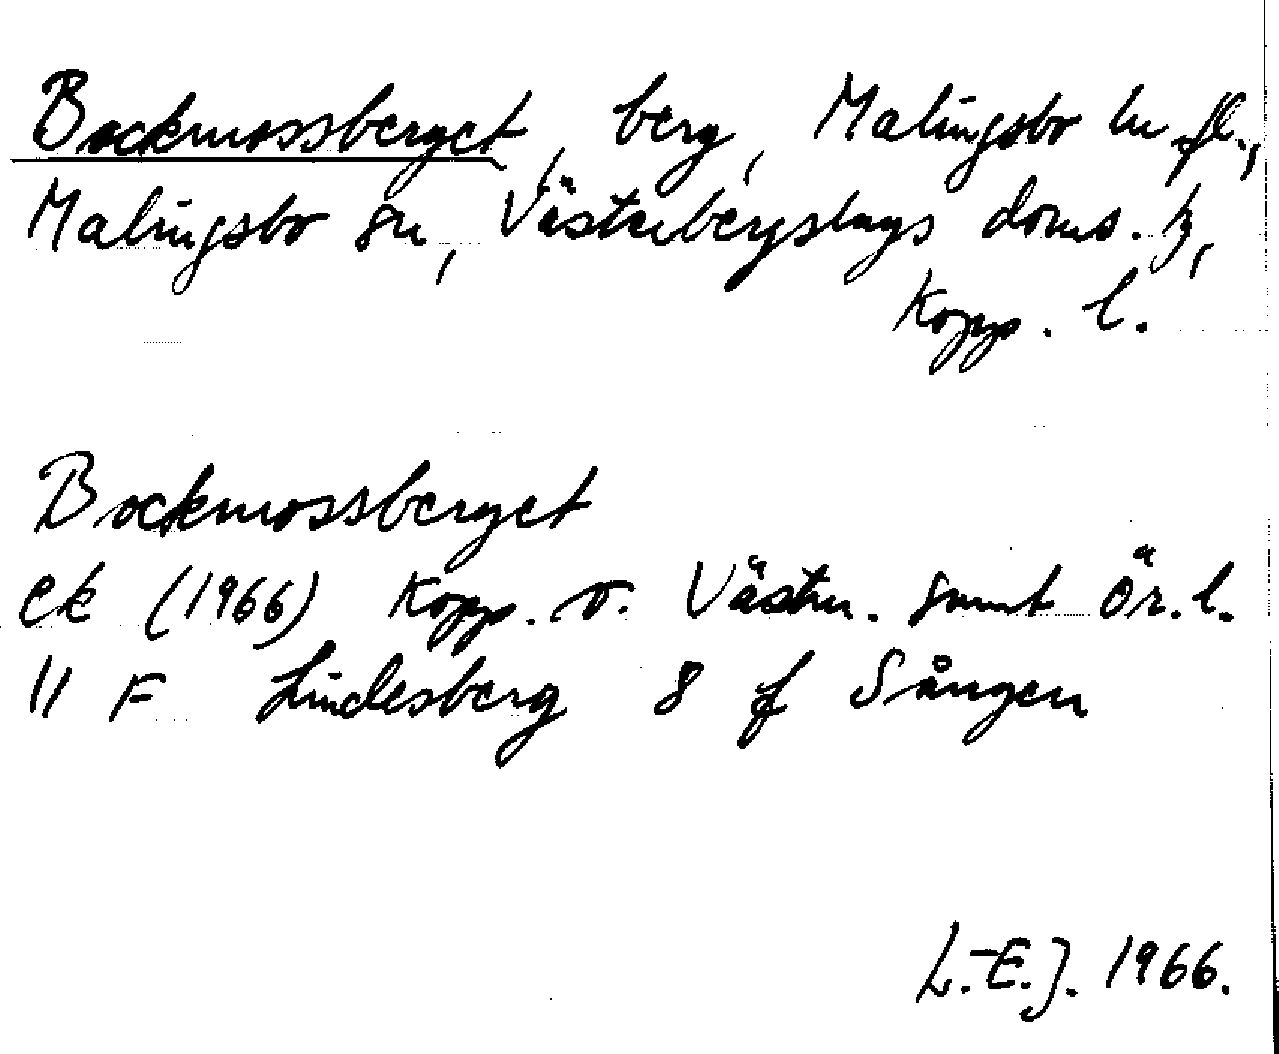 Bockmossberget, berg, Malingsbo hu fl.,
Malingsbo sn, Västerbergslags doms. h,
Kopp. l.
Bockmossberget
ek (1966) Kopp. o. Västm. samt Ör. l.
11 F Lindesberg 8 f Sången
L.-E.J. 1966.